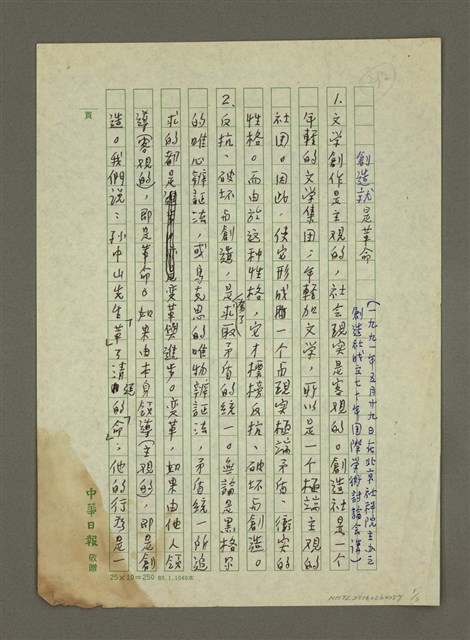 創造就是革命
(一九九一年五月廿九日在北京社科院主办之
創造社成立七十年国際学術討論会講)
1. 文学創作是主观的，社会現实是客观的。創造社是一个
年輕的文学集团；年輕加文学，所以是一个極端主观的
社团。因此，使它形成爲一个与現实極端矛盾、衝突的
性格。而由於这种性格，它才標榜反抗、破坏与創造。
2. 反抗、破坏与創造，是爲了求取矛盾的統一。無論是黑格尔
的唯心辯証法，或馬克思的唯物辯証法，矛盾統一所追
求的都是变革與進步。变革，如果由他人領
導(客观的)，即是革命。如果由本身領導(主观的)，即是創
造。我們說：孙中山先生「革了清廷的命」；他的行为是一
頁
中華日報 敬贈
25×10=250
1/5